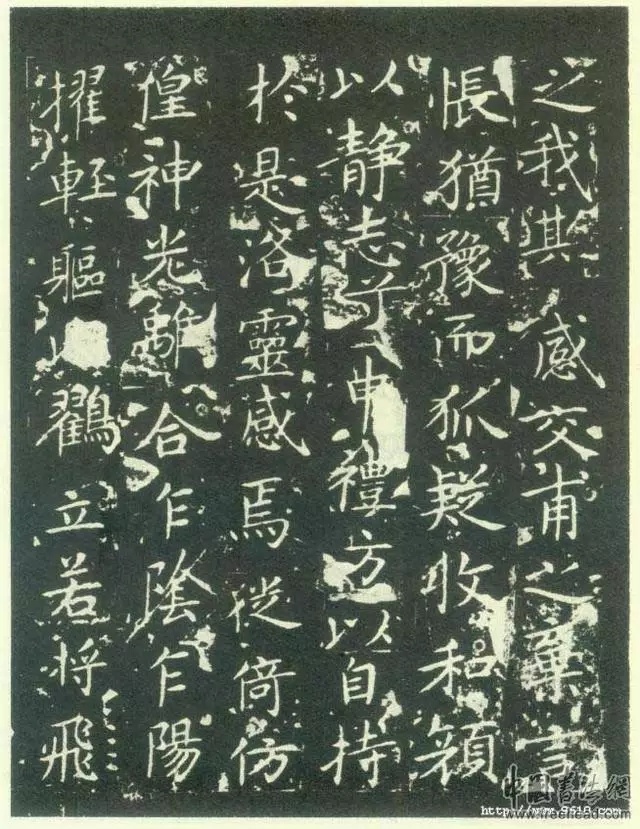 之我其感交甫之棄言
悵猶豫而狐疑收和顏
以靜志兮申禮方以自持
於是洛靈感焉徙倚仿
偟神光離合乍陰乍陽
擢輕軀以鶴立若將飛
中国書法網
http://www.9610.com
www.freehead.com